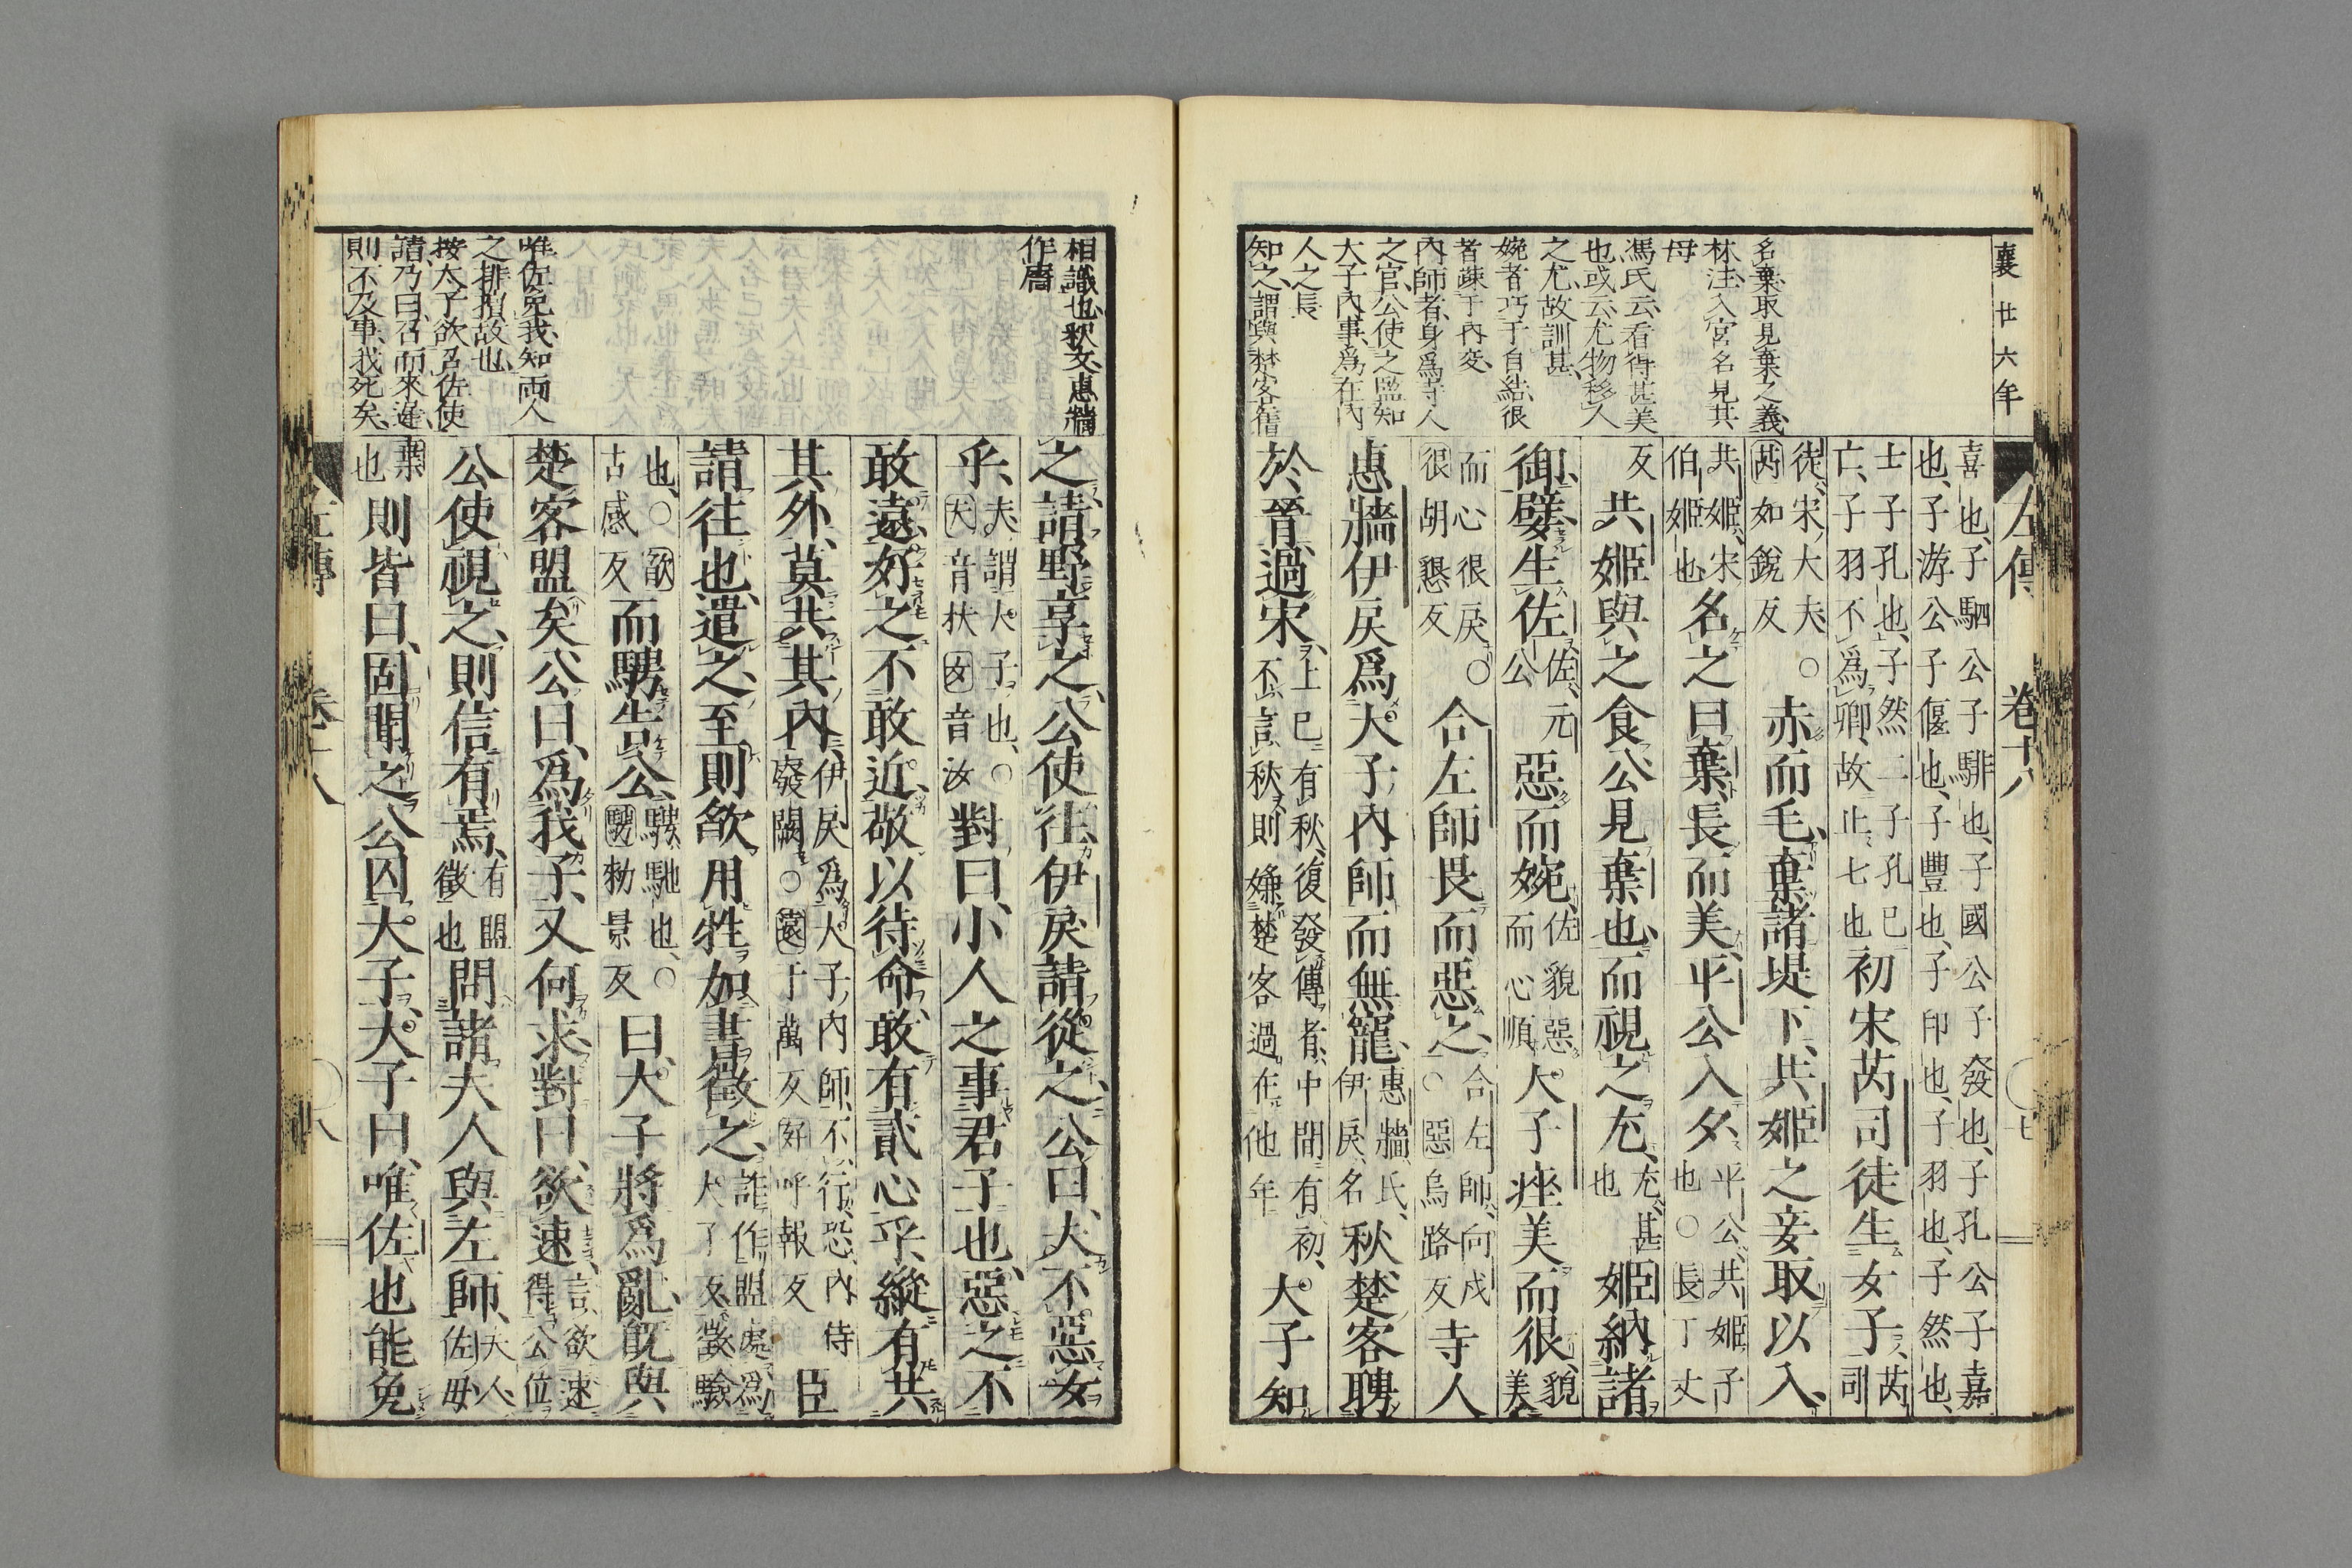 襄廿六年
左傳 卷十八 七
名棄取見棄之義
林注入宮名見其
母
馮氏云看得甚美
也或云尤物移人
之尤故訓甚
婉者巧于自結很
者疎于內交
內師者身爲寺人
之官公使之監知
大子內事爲在內
人之長
知之謂與楚客舊
喜也子駟公子騑也子國公子發也子孔公子嘉
也子游公子偃也子豐也子印也子羽也子然也
士子孔也子然二子孔已
亡子羽不爲卿故止七也初宋芮司徒生女子芮司
徒宋大夫○
芮如銳反赤而毛棄諸堤下共姬之妾取以入
共姬宋
伯姬也名之曰棄長而美平公入夕平公共姬子
也○長丁丈
反共姬與之食公見棄也而視之尤尤甚
也姬納諸
御嬖生佐佐元
公惡而婉佐貌惡
而心順大子痤美而很貌
美
而心很戾○
很胡懇反合左師畏而惡之合左師向戌
○惡烏路反寺人
惠牆伊戾爲大子內師而無寵惠牆氏
伊戾名秋楚客聘
於晉過宋上已有秋復發傳者中間有初
不言秋則嫌楚客過在他年大子知
相識也釈文惠牆
作廧
唯佐免我知兩人
之排擯故也
按大子欲召佐使
請乃曰召而來遲
則不及事我死矣
之請野享之公使往伊戾請從之公曰夫不惡女
乎夫謂大子也○
夫音扶女音汝對曰小人之事君子也惡之不
敢遠好之不敢近敬以待命敢有貳心乎縱有共
其外莫共其內伊戾爲大子內師不行恐內侍
廢闕○遠于萬反好呼報反臣
請往也遣之至則欿用牲加書徵之詐作盟處爲
大子反徵驗
也○欿
古感反而騁告公騁馳也○
騁勑景反曰大子將爲亂既與
楚客盟矣公曰爲我子又何求對曰欲速言欲速
得公位
公使視之則信有焉有盟
徵也問諸夫人與左師夫人
佐母
棄
也則皆曰固聞之公囚大子大子曰唯佐也能免
左傳 卷十八 八